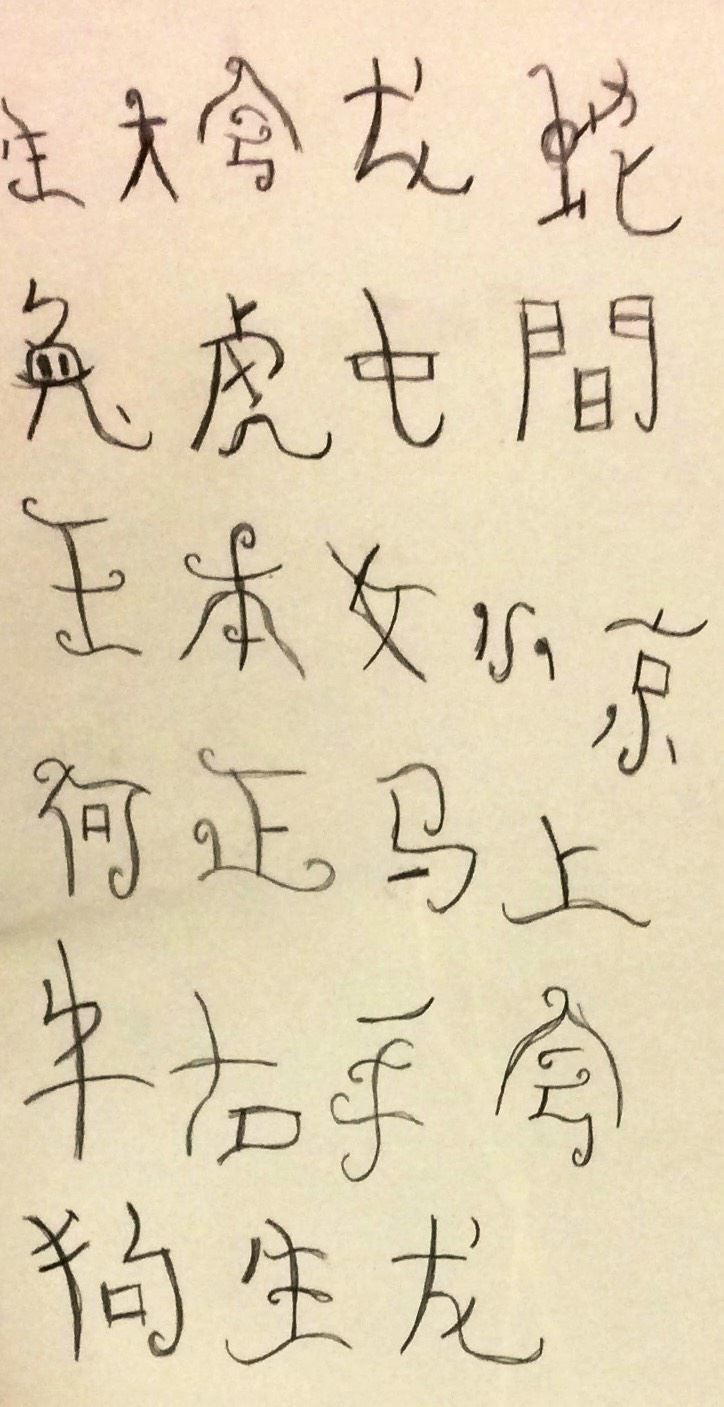 生大龙蛇
兔虎电間
王本女小京
何正马上
牛右手
狗生龙